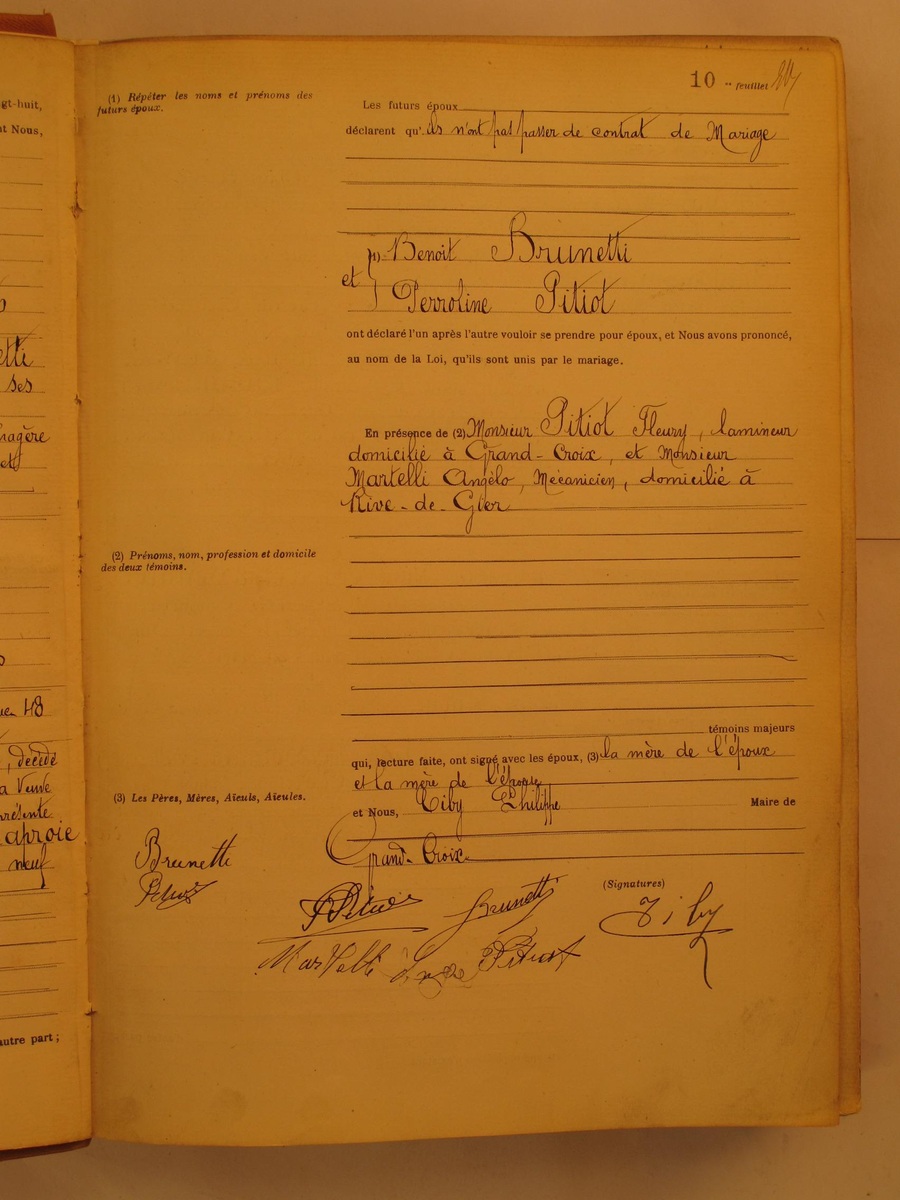 10 -- feuillet
(1) Répéter les noms et prénoms des
futurs époux.
Les futurs époux
déclarent qu'ils n'ont pas passer de contrat de Mariage
(1) Benoit Brunetti
et
Perroline Pitiot
ont déclaré l'un après l'autre vouloir se prendre pour époux, et Nous avons prononcé,
au nom de la Loi, qu'ils sont unis par le mariage.
En présence de (2) Monsieur Pitiot Fleury, lamineur
domicilié à Grand-Croix, et Monsieur
Martelli Angélo, Mécanicien, domicilié à
Rive-de-Gier
(2) Prénoms, nom, profession et domicile
des deux témoins.
témoins majeurs
qui, lecture faite, ont signé avec les époux, (3) la mère de l'époux
et la mère de l'épouse
(3) Les Pères, Mères, Aïeuls, Aïeules.
et Nous, Ciby Philippe Maire de
Grand-Croix
(Signatures)
Brunetti
Brunetti
Martelli
Pitiot
gt-huit,
t Nous,
etti
ses
nagère
et
48
, décédé
a Veuve
présente
aproie
neuf
autre part ;